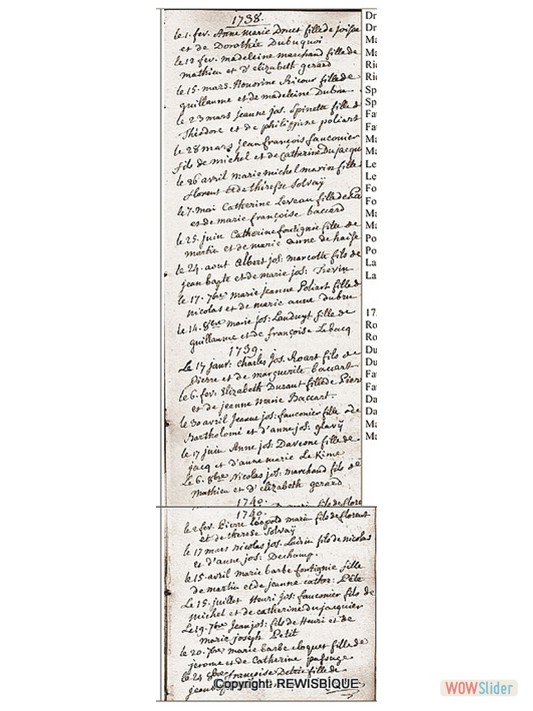 1738.
le 1. fev. Anne marie Druet fille de joseph
et de Dorothée Dubuquoi
le 12 fev. madeleine marchand fille de
mathieu et d'elizabeth gerard
le 15. mars. honorine Ricour fille de
guillaume et de madeleine Dubru
le 23 mars jeanne jos. Spinette fille de
theodore et de philippine poliart
le 28 mars jean françois fauconier
fils de michel et de catharine Dujacquier
le 26 avril marie michel marin fille
florent et de theresse Solvaÿ
le 7. mai Catherine Leveau fille de
et de marie françoise baccard
le 25. juin Catherine fontignie fille de
martin et de marie anne de haise
le 24. aout Albert jos: marcotte fils de
jean bapte et de marie jos: Trevin
le 17. 7bre marie jeanne Poliart fille de
nicolas et de marie anne dubru
le 14. 8bre marie jos: Landuyt fille de
guillaume et de françoise Lebacq
1739.
Le 17 janr: Charles Jos. Roart fils de
Pierre et de marguerite baccart
le 6. fev: Elizabeth Durant fille de Pierre
et de jeanne marie Baccart.
le 30 avril Jeanne jos: fauconier fille de
Bartholomé et d'anne jos: glavÿ
le 17 juin Anne jos: Davesne fille de
jacq et d'anne marie Le Rime
Le 6. 8bre Nicolas jos: marchand fils de
Mathieu et d'elizabeth gerard
1740.
1740.
le 2 fev. Pierre Leopole marin fils de florent
et de therese Solvaÿ
le 17 mars nicolas jos. Loirin fils de nicolas
et d'anne jos: Dechamp.
le 15. avril marie barbe fontignie fille
de martin et de jeanne cathe:
Le 15. juillet Henri jos: fauconier fils de
michel et de catherine dujacquier
Le 19. 7bre Jean jos: fils de Henri et de
marie joseph Petit
le 20. 7bre marie barbe cloquet fille de
jerome et de Catherine
le 24 8bre françoise fille de
jean
Dr
Dr
Ma
Ma
Ric
Ric
Sp
Sp
Fa
Fa
Ma
Ma
Le
Le
Fo
Fo
Ma
Ma
Po
Po
La
La
17
Ro
Ro
Du
Du
Fa
Fa
Da
Da
Ma
Ma
Copyright: REWISBIQUE
WOWSlider